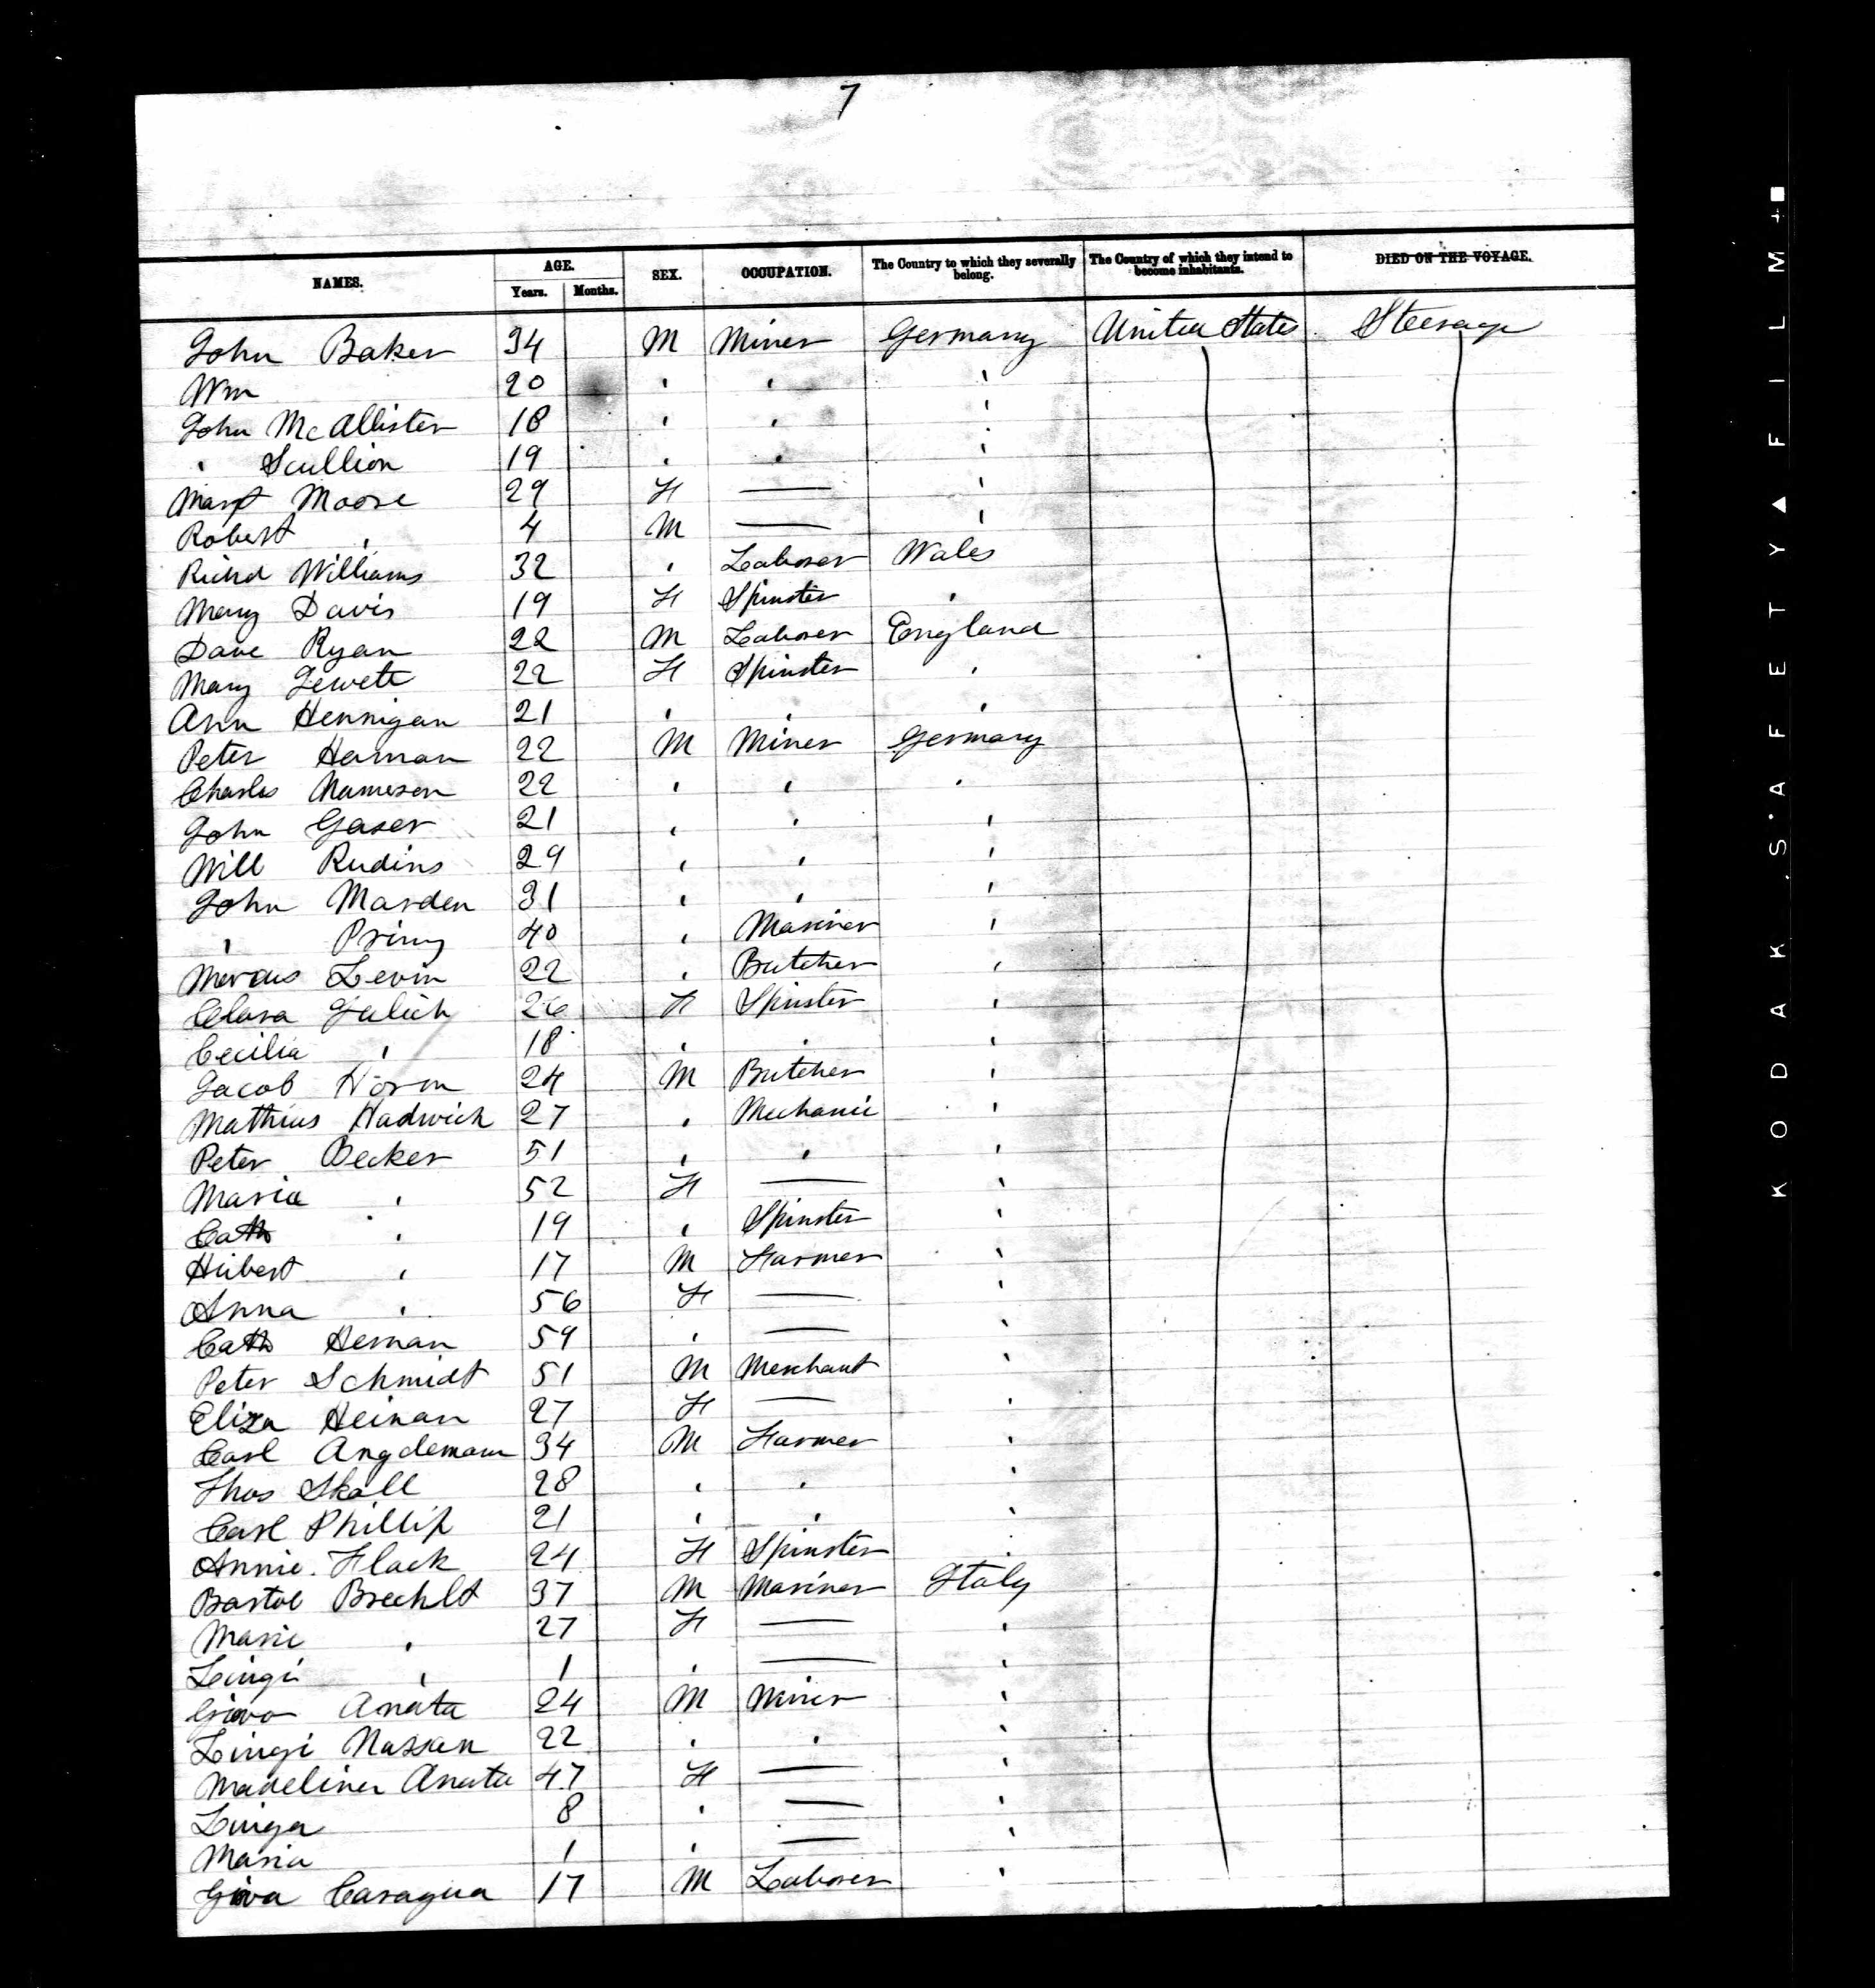 7
NAMES. AGE. SEX. OCCUPATION. The Country to which they severally belong. The Country of which they intend to become inhabitants. DIED ON THE VOYAGE.
Years. Months.
John Baker 34 M Miner Germany United States Steerage
Wm 20 " " "
John McAllister 18 " " "
" Scullion 19 " " "
Margt Moore 29 F — "
Robert " 4 M — "
Richd Williams 32 " Laborer Wales
Mary Davis 19 F Spinster "
Dave Ryan 22 M Laborer England
Mary Jewett 22 F Spinster "
Ann Hennigan 21 " " "
Peter Heman 22 M Miner Germany
Charles Mameson 22 " " "
John Gaser 21 " " "
Will Rudins 29 " " "
John Marden 31 " " "
" Priny 40 " Mariner "
Marcus Levin 22 " Butcher "
Clara Julich 26 F Spinster "
Cecilia " 18 " " "
Jacob Horn 24 M Butcher "
Mathias Hadwich 27 " Mechanic "
Peter Becker 51 " " "
Maria " 52 F — "
Cath " 19 " Spinster "
Hubert " 17 M Farmer "
Anna " 56 F — "
Cath Heman 59 " — "
Peter Schmidt 51 M Merchant "
Eliza Heinan 27 F — "
Carl Angdemann 34 M Farmer "
Thos Skall 28 " " "
Carl Phillip 21 " " "
Annie Flack 24 F Spinster "
Bartol Brechlt 37 M Mariner Italy
Marie " 27 F — "
Luigi " 1 " — "
Giova Anata 24 M Miner "
Luigi Nassan 22 " " "
Madelina Anata 47 F — "
Luiga 8 " — "
Maria 1 " — "
Giova Caragua 17 M Laborer "
KODAK SAFETY FILM